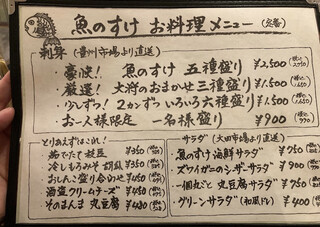 魚のすけ お料理メニュー
刺身 (豊洲市場より直送)
・豪快! 魚のすけ 五種盛り ¥2,500
・厳選! 大将のおまかせ三種盛り ¥1,500
・少しずつ! 2カンずついろいろ六種盛り ¥1,500
・お一人様限定 一名様盛り ¥900
とりあえずはこれ!
・茹でたて枝豆 ¥350
・冷しもろみそ胡瓜 ¥350
・おしんこ盛り合わせ ¥450
・海盗クリームチーズ ¥450
・そのまんま 丸豆腐 ¥480
サラダ (大田市場より直送)
・魚のすけ 海鮮サラダ ¥750
・ズワイガニのシーザーサラダ ¥900
・一個丸ごと 丸豆腐サラダ ¥750
・グリーンサラダ (和風ドレ) ¥400